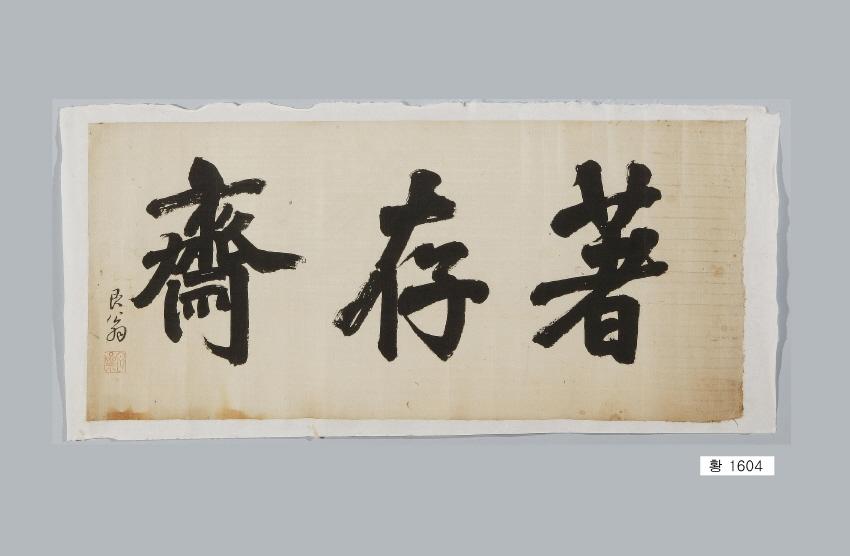 著存齋
良翁
황 1604